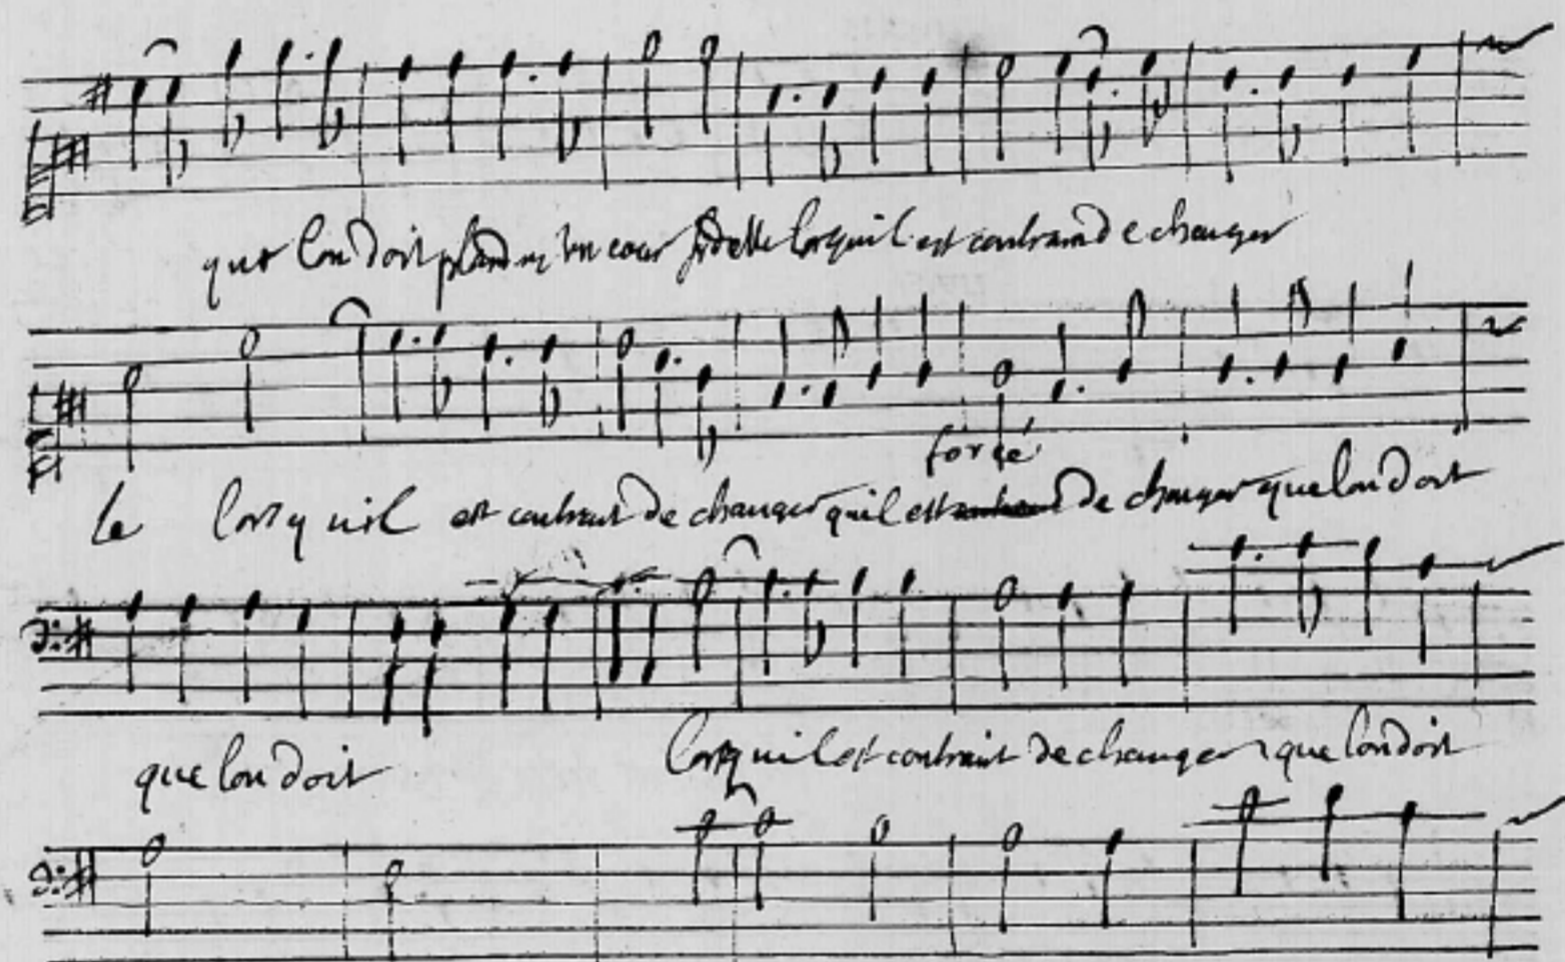 que lon doit plaindre un coeur fidelle lorsquil est contraind e changer
forcé
le lorsquil est contraint de changer quil est de changer que lon doit
que lon doit lorsquil est contraint de changer que lon doit